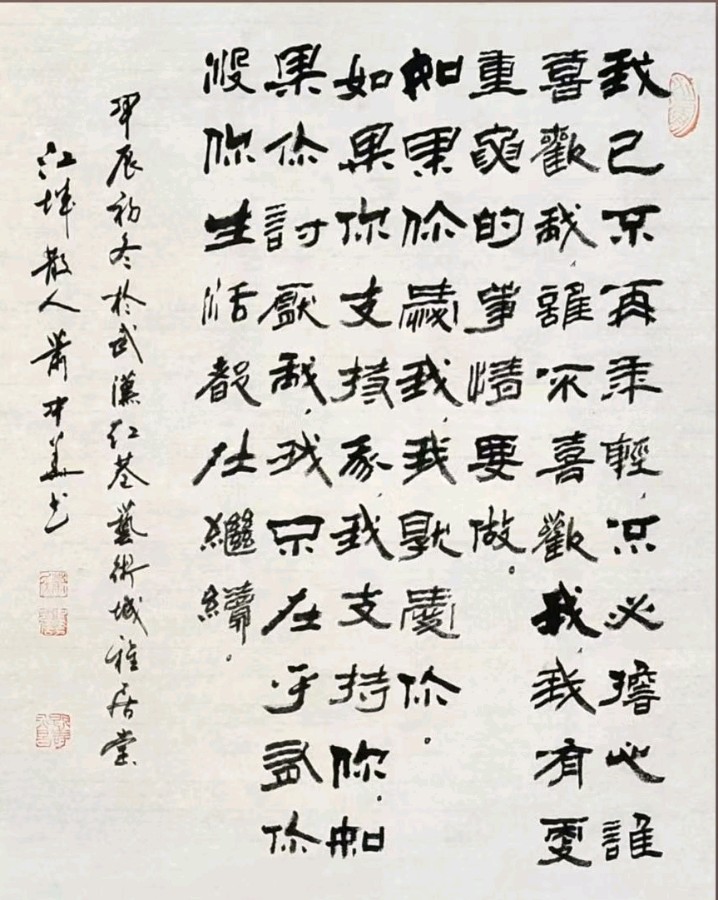 我已不再年輕,不必擔心誰
喜歡我,誰不喜歡我,我有更
重要的事情要做。
如果你愛我,我就愛你。
如果你支持我,我支持你,如
果你討厭我,我不在乎有你
沒你生活都在繼續。
甲辰初冬於武漢紅基藝術城雅居堂
江城散人蕭